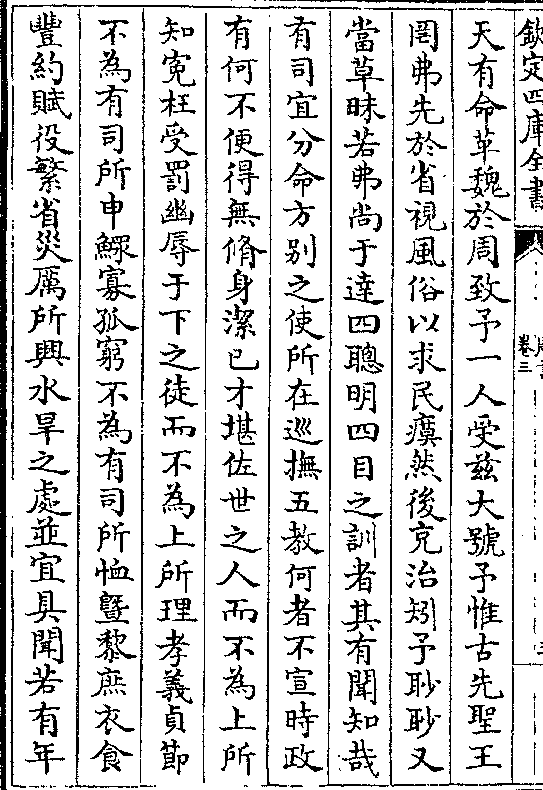 欽定四庫全書
卷三
天有命革魏於周致予一人受兹大號予惟古先聖王
罔弗先於省視風俗以求民瘼然後克治矧予眇眇又
當草昧若弗尚于達四聰明四目之訓者其有聞知哉
有司宜分命方别之使所在巡撫五教何者不宣時政
有何不便得無脩身潔已才堪佐世之人而不為上所
知寃枉受罰幽辱于下之徒而不為上所理孝義貞節
不為有司所申鰥寡孤窮不為有司所恤暨黎庶衣食
豐約賦役繁省災厲所興水旱之處並宜具聞若有年